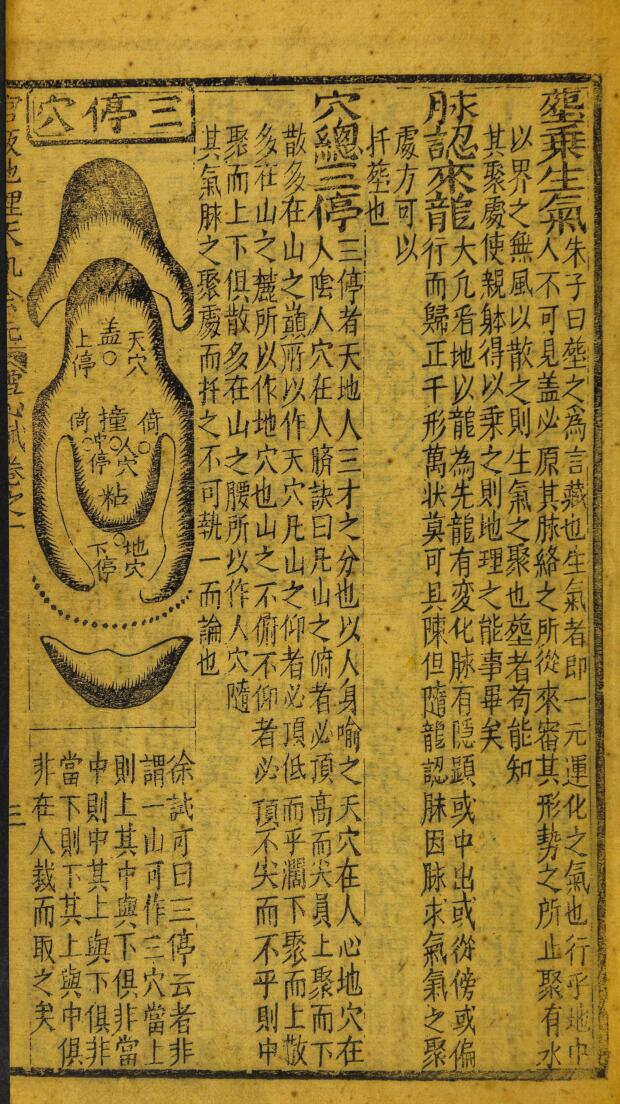 塟乘生氣
朱子曰塟之為言藏也生氣者即一元運化之氣也行乎地中
人不可見盖必原其脉絡之所從來審其形勢之所止聚有水
以界之無風以散之則生氣之聚也塟者苟能知
其聚處使親躰得以乘之則地理之能事畢矣
脉認來龍
大凢看地以龍為先龍有変化脉有隱顕或中出或從傍或偏
行而歸正千形萬状莫可具陳但隨龍認脉因脉求氣氣之聚
處方可以
扦塟也
穴總三停
三停者天地人三才之分也以人身喻之天穴在人心地穴在
人陰人穴在人臍訣曰凢山之俯者必頂高而尖員上聚而下
散多在山之巔所以作天穴凢山之仰者必頂低而乎濶下聚而上散
多在山之麓所以作地穴也山之不俯不仰者必頂不尖而不乎則中
聚而上下俱散多在山之腰所以作人穴隨
其氣脉之聚處而扦之不可執一而論也
三停穴
天穴
盖
上停
倚
撞
人穴
中停
倚
粘
地穴
下停
徐試可曰三停云者非
謂一山可作三穴當上
則上其中與下俱非當
中則中其上與下俱非
當下則下其上與中俱
非在人裁而取之矣
雪心賦卷之一
三